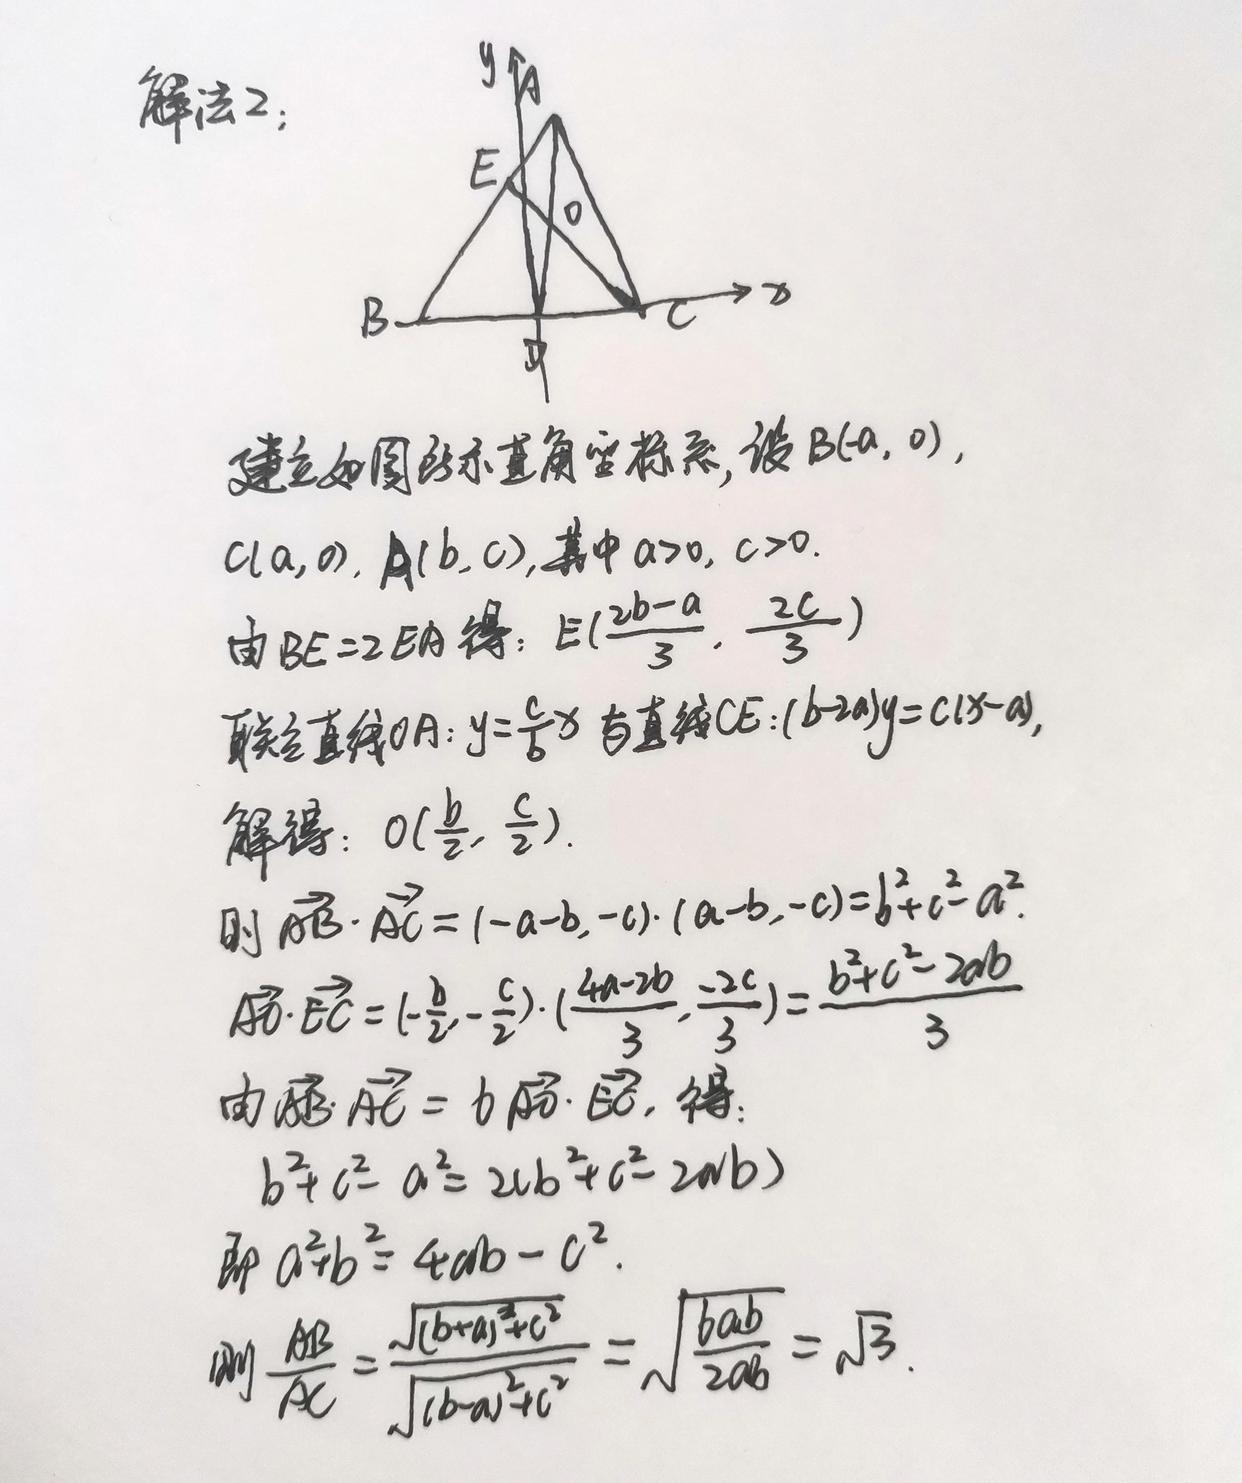 解法2:
y
A
E
O
B
C
x
D
建立如图所示直角坐标系,设B(-a, 0),
C(a, 0), A(b, c), 其中 a>0, c>0.
由BE=2EA得: E($\frac{2b-a}{3}$, $\frac{2c}{3}$)
联立直线OA: y=$\frac{c}{b}$x 与直线CE: (b-2a)y=c(x-a),
解得: O($\frac{b}{2}$, $\frac{c}{2}$).
则 $\overrightarrow{AB}\cdot\overrightarrow{AC}$=(-a-b, -c)·(a-b, -c)=b²+c²-a².
$\overrightarrow{AO}\cdot\overrightarrow{EC}$=(-$\frac{b}{2}$, -$\frac{c}{2}$)·($\frac{4a-2b}{3}$, $\frac{-2c}{3}$)=$\frac{b^2+c^2-2ab}{3}$
由$\overrightarrow{AB}\cdot\overrightarrow{AC}$=6$\overrightarrow{AO}\cdot\overrightarrow{EC}$, 得:
b²+c²-a²=2(b²+c²-2ab)
即 a²+b²=4ab-c².
则 $\frac{AB}{AC}=\frac{\sqrt{(b+a)^2+c^2}}{\sqrt{(b-a)^2+c^2}}=\sqrt{\frac{6ab}{2ab}}=\sqrt{3}$.